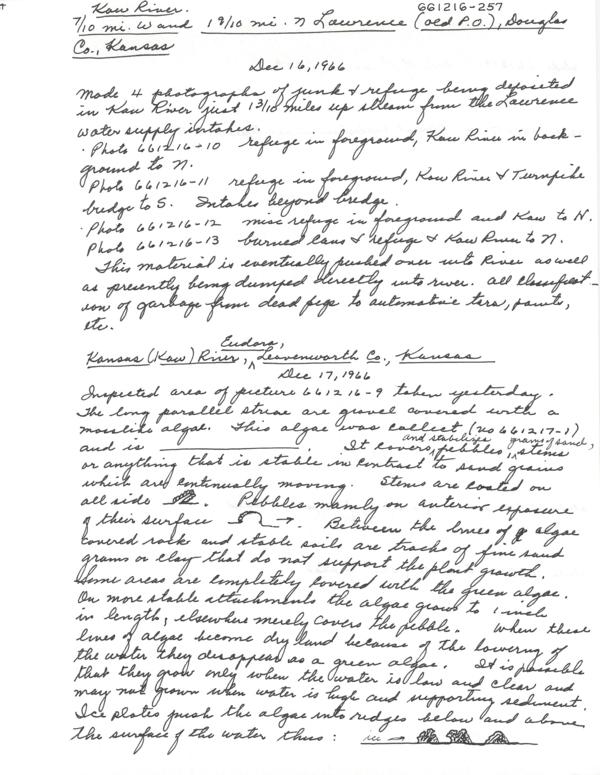 Kaw River. 661216-257
7/10 mi. W and 1 9/10 mi. N Lawrence (old P.O.), Douglas
Co., Kansas
Dec 16, 1966
Made 4 photographs of junk & refuge being deposited
in Kaw River just 1 3/10 miles up stream from the Lawrence
water supply intakes.
· Photo 661216-10 refuge in foreground, Kaw River in back-
ground to N.
Photo 661216-11 refuge in foreground, Kaw River & Turnpike
bridge to S. Intakes beyond bridge.
· Photo 661216-12 misc refuge in foreground and Kaw to N.
Photo 661216-13 burned cans & refuge & Kaw River to N.
This material is eventually pushed over into River as well
as presently being dumped directly into river. All classificat-
ion of garbage from dead pigs to automotive tars, paints,
etc.
Eudora,
Kansas (Kaw) River, ^ Leavenworth Co., Kansas
Dec 17, 1966
Inspected area of picture 661216-9 taken yesterday.
The long parallel striae are gravel covered with a
mosslike algae. This algae was collect (no 661217-1)
and is ____________. It covers, pebbles, ^ and stabilizes grains of sand, stems
or anything that is stable in contrast to sand grains
which are continually moving. Stems are coated on
all side . Pebbles mainly on anterior exposure
of their surface . Between the lines of algae
covered rock and stable soils are tracks of fine sand
grams or clay that do not support the plant growth.
Some areas are completely covered with the green algae.
On more stable attachments the algae grows to 1 inch
in length; elsewhere merely covers the pebble. When these
lines of algae become dry land because of the lowering of
the water they disappear as a green algae. It is possible
that they grow only when the water is low and clear and
may not grown when water is high and supporting sediment.
Ice plates push the algae into ridges below and above
the surface of the water thus: ice →